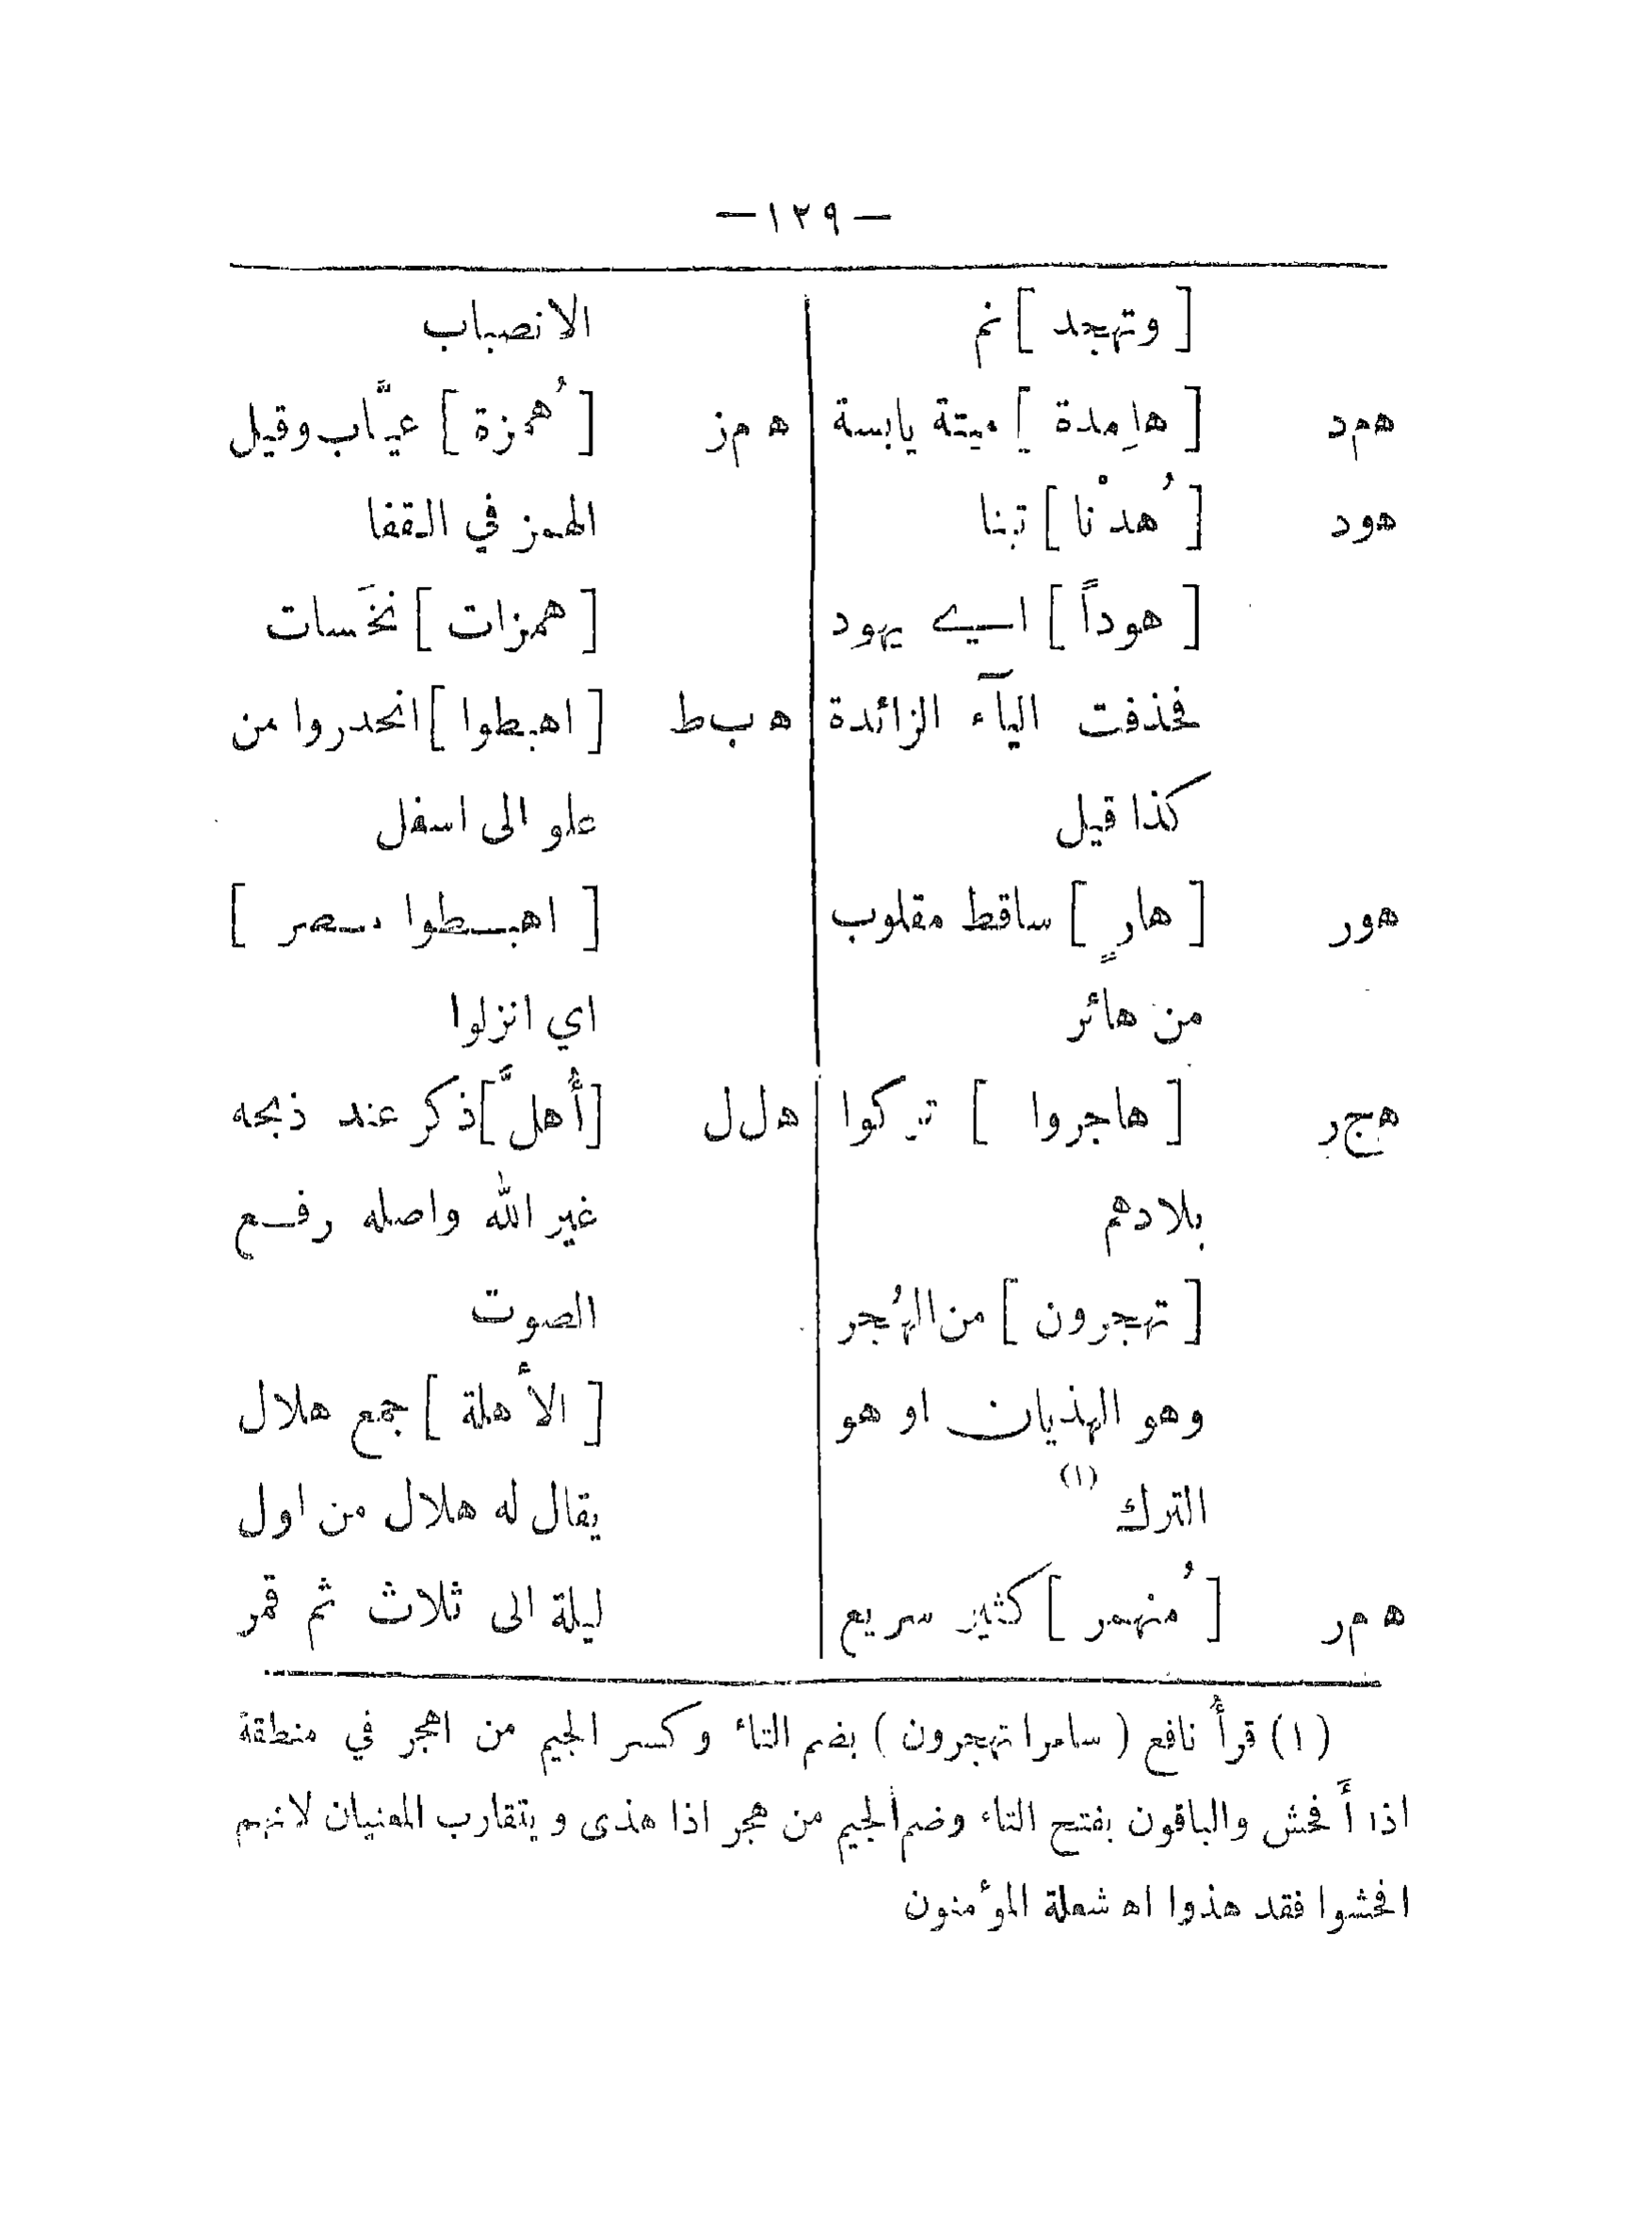 — ١٢٩ —
[ وتهجد ] نم
ه م د [ هامِدة ] ميتة يابسة
هود [ هُدْنا ] تبنا
[ هوداً ] اي يهود
فحذفت اليآء الزائدة
كذا قيل
هور [ هارٍ ] ساقط مقلوب
من هائر
ه ج ر [ هاجروا ] تركوا
بلادهم
[ تهجرون ] من الهُجر
وهو الهذيان او هو
الترك (١)
ه م ر [ مُنهمر ] كثير سريع
الانصباب
ه م ز [ هُمزة ] عيَّاب وقيل
الهمز في القفا
[ همزات ] نخَسات
ه ب ط [ اهبطوا ] انحدروا من
علو الى اسفل
[ اهبطوا مصر ]
اي انزلوا
ه ل ل [ أُهلَّ ] ذكر عند ذبحه
غير الله واصله رفع
الصوت
[ الأهلة ] جمع هلال
يقال له هلال من اول
ليلة الى ثلاث ثم قمر
(١) قرأ نافع ( سامرا تهجرون ) بضم التاء وكسر الجيم من اهجر في منطقة
اذا أَفحش والباقون بفتح التاء وضم الجيم من هجر اذا هذى ويتقارب المعنيان لانهم
افحشوا فقد هذوا اه شعلة المؤمنون